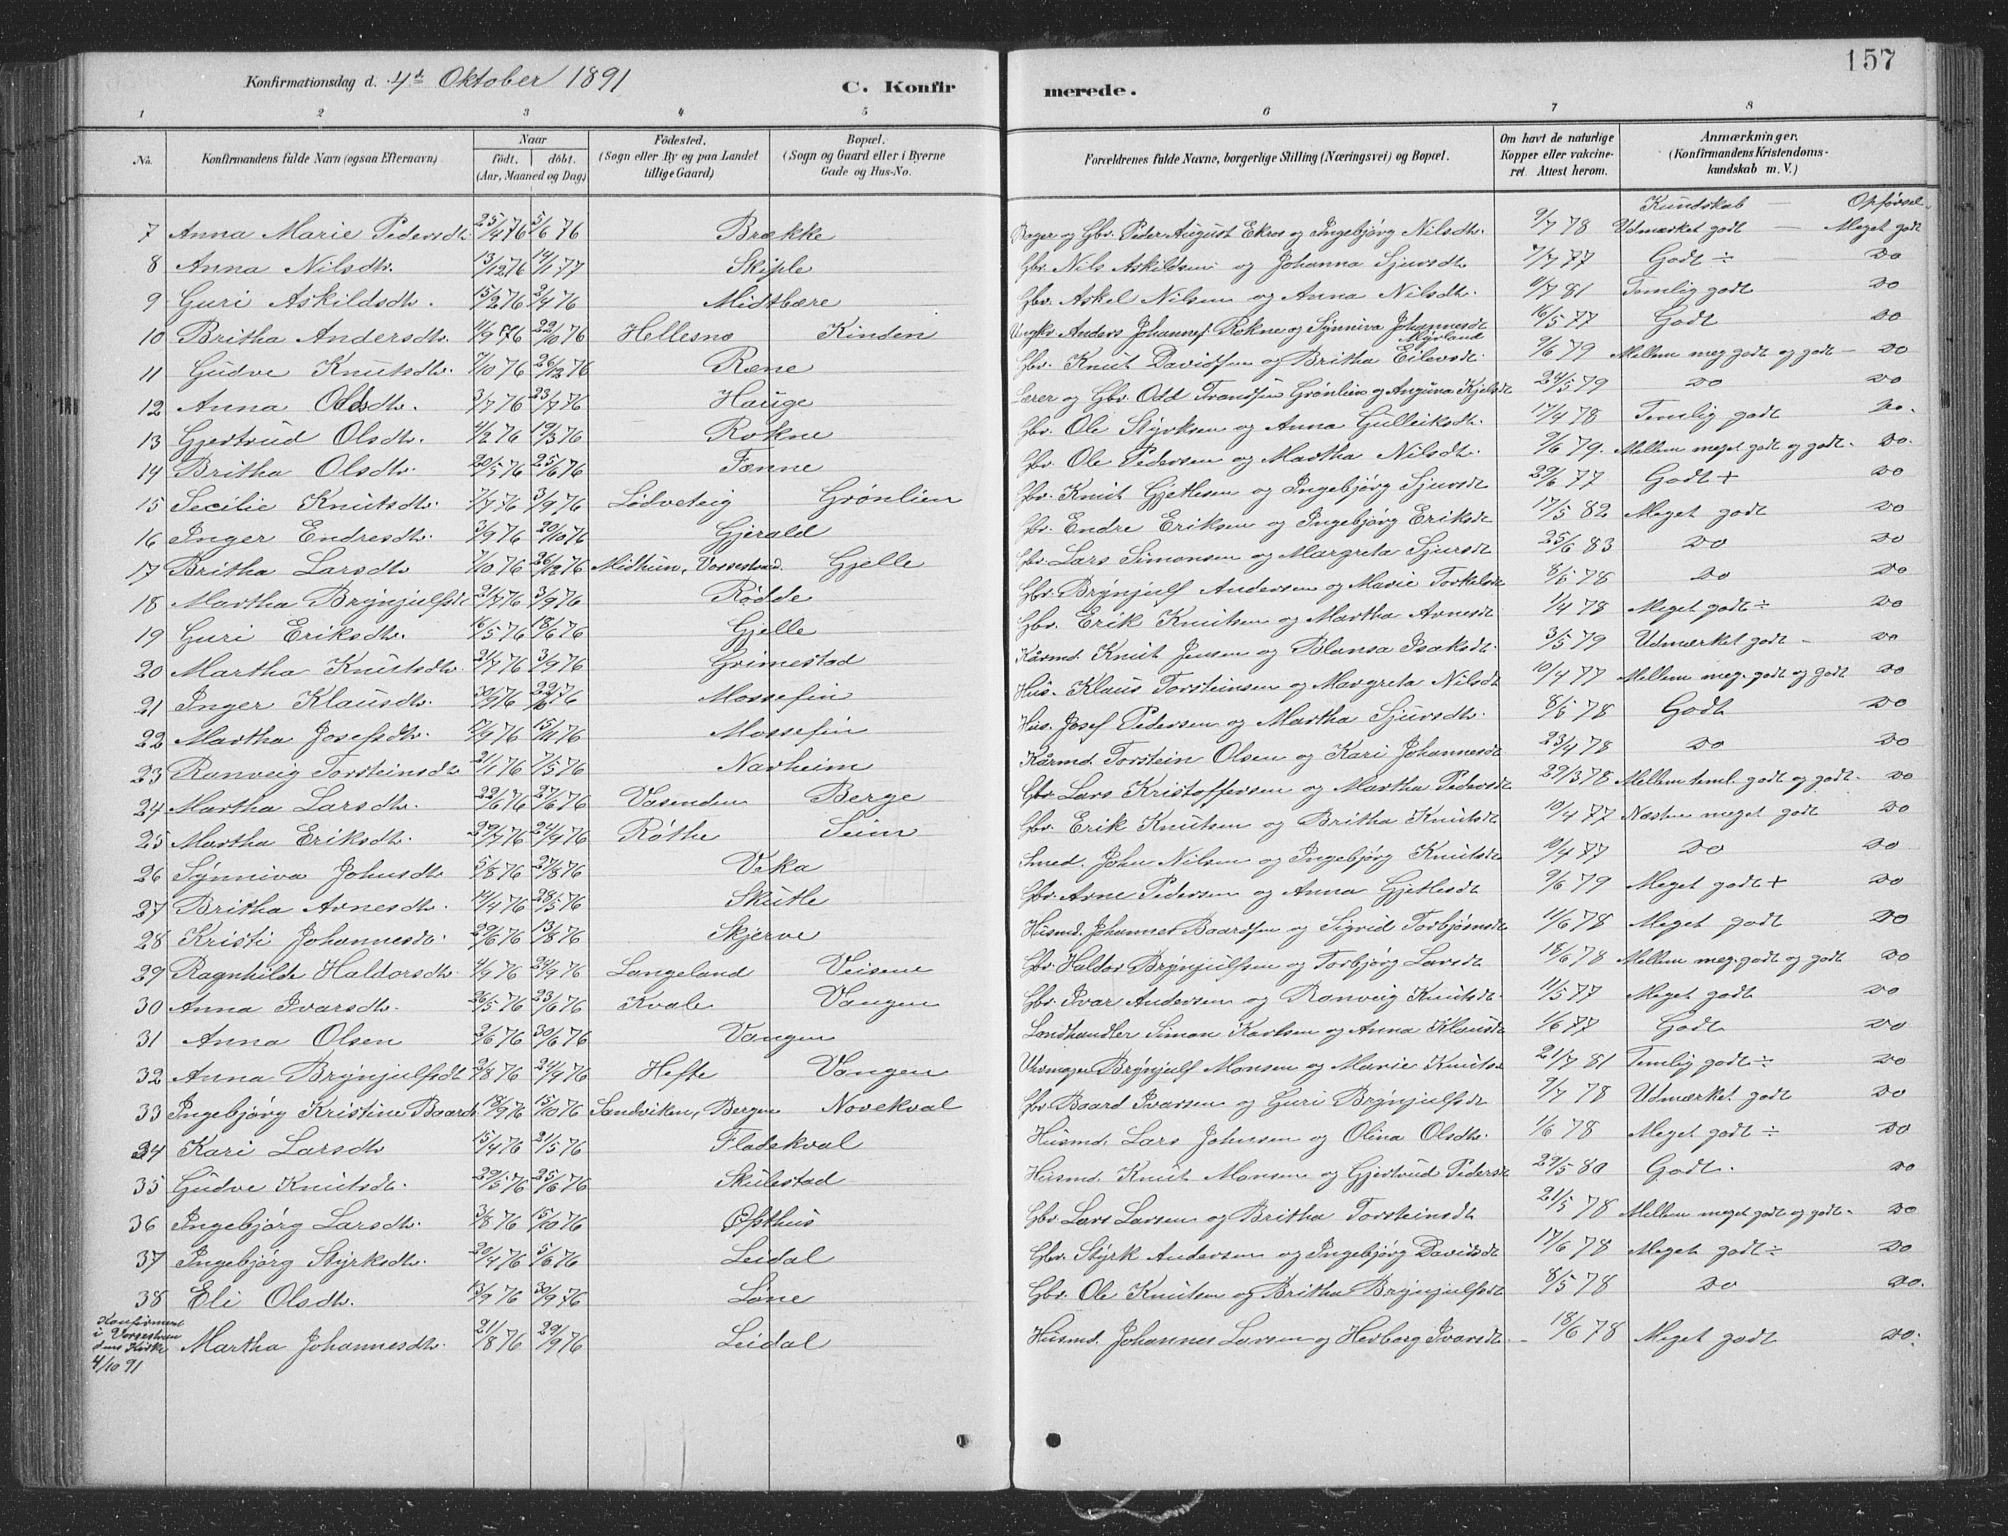 157
Konfirmationsdag d. 4de Oktober 1891
C. Konfirmerede.
1 2 3 4 5 6 7 8
No. Konfirmandens fulde Navn (ogsaa Efternavn) Naar født. døbt. (Aar, Maaned og Dag) Fødested. (Sogn eller By og paa Landet tillige Gaard) Bopæl. (Sogn og Gaard eller i Byerne Gade og Hus-No. Forældrenes fulde Navne, borgerlige Stilling (Næringsvei) og Bopæl. Om havt de naturlige Kopper eller vakcineret. Attest herom. Anmærkninger. (Konfirmandens Kristendomskundskab m. V.)
Kundskab — Opførsel
7 Anna Marie Pedersdtr. 25/4 76 5/6 76 Brække Bager og Gbr. Peder August Ekros og Ingebjørg Nilsdtr. 9/7 78 Udmærket godt — Meget godt
8 Anna Nilsdtr. 13/12 76 14/1 77 Skiple Gbr. Nils Askildsen og Johanna Sjursdtr 7/7 77 Godt ÷ Do
9 Guri Askildsdtr. 15/2 76 2/4 76 Midtbære Gbr. Askel Nilsen og Anna Nilsdtr. 9/7 81 Temlig godt Do
10 Britha Andersdtr. 4/9 76 22/10 76 Hellesnø Kinden Ungkr Anders Johannes. Rokne og Synniva Johannesdt Myrland 16/5 77 Godt Do
11 Gudve Knutsdtr. 7/10 76 26/12 76 Ræne Gbr. Knut Davidsen og Britha Eilevsdt. 9/6 79 Mellem meg godt og godt — Do
12 Anna Oddsdtr. 3/7 76 23/7 76 Hauge Lærer og Gbr. Odd Grønlien og Kjelsdt 24/5 79 Do Do
13 Gjertrud Olsdtr. 4/2 76 19/3 76 Rokne Gbr. Ole Styrksen og Anna Gulleiksdt. 17/4 78 Temlig godt Do.
14 Britha Olsdtr. 20/5 76 25/6 76 Fænne Gbr. Ole Pedersen og Martha Nilsdt. 9/6 79. Mellem meget godt og godt. Do.
15 Secilie Knutsdtr. 7/7 76 3/9 76 Lødveteig Grønlien Gbr. Knut Gjetlesen og Ingebjørg Sjursdt 29/6 77 Godt + Do
16 Inger Endresdtr. 3/9 76 20/10 76 Gjerald Gbr. Endre Eriksen og Ingebjørg Eriksdt 17/5 82 Meget godt Do
17 Britha Larsdtr 7/10 76 26/12 76 Midtun, Vossestrand. Gjelle Gbr. Lars Simonsen og Margreta Sjursdt 25/6 83 Do Do
18 Martha Brynjulfsdt 21/7 76 3/9 76 Rødde Gbr. Brynjulf Andersen og Marie Torkelsdt 8/5 78 Do Do
19 Guri Eriksdtr. 16/5 76 18/6 76 Gjelle Gbr. Erik Knutsen og Martha Arnesdt 1/4 78 Meget godt ÷ Do
20 Martha Knutsdtr. 21/7 76 3/9 76 Grimestad Kårmd. Knut Jensen og Blansa Isaksdt. 3/5 79 Udmærket godt - Do
21 Inger Klausdtr. 30/9 76 22/10 76 Mossefin Hus. Klaus Torsteinsen og Margreta Nilsdt 10/4 77 Mellem meg. godt og godt Do
22 Martha Josefsdtr. 17/9 76 15/11 76 Mossefin Hus. Josef Pedersen og Martha Sjursdtr. 8/5 78 Godt Do
23 Ranveig Torsteinsdtr 21/1 76 7/5 76 Navheim Kårmd. Torstein Olsen og Kari Johannesdt 23/4 78 Do Do
24 Martha Larsdtr. 22/6 76 27/6 76 Vasenden Berge Gbr. Lars Kristoffersen og Martha Pedersdt 29/3 78 Mellem teml. godt og godt. Do
25 Martha Eriksdtr. 29/7 76 24/9 76 Røthe Seim Gbr. Erik Knutsen og Britha Knutsdt 10/4 77 Næsten meget godt Do
26 Synniva Johnsdtr 5/8 76 27/8 76 Veka Smed. John Nilsen og Ingebjørg Knutsdt 10/4 77 Do Do
27 Britha Arnesdtr. 14/4 76 28/5 76 Skutle Gbr. Arne Pedersen og Anna Gjetlesdt 9/6 79 Meget godt + Do
28 Kristi Johannesdt. 29/6 76 13/8 76 Skjerve Husmd. Johannes Baardsen og Sigrid Torbjørnsdt 11/6 78 Meget godt Do
29 Ragnhilde Haldorsdtr. 4/9 76 24/9 76 Langeland Veisene Gbr. Haldor Brynjulfsen og Torbjørg Larsdt 18/6 78 Mellem meg. godt og godt Do
30 Anna Ivarsdtr. 26/5 76 23/6 76 Kvale Vangen Gbr. Ivar Andersen og Ranveig Knutsdt. 11/5 77 Meget godt Do
31 Anna Olsen 2/6 76 30/6 76 Vangen Landhandler Simon Karlsen og Anna Klausdt 1/6 77 Godt Do
32 Anna Brynjulfsdt 2/8 76 24/9 76 Hefte Vangen Urmager Brynjulf Monsen og Marie Knuts 21/7 81 Temlig godt ÷ Do
33 Ingebjørg Kristine Baardt 18/9 76 15/10 76 Sandviken, Bergen Novekval Gbr. Baard Ivarsen og Guri Brynjulfsdt 9/7 78 Udmærket godt Do
34 Kari Larsdtr 15/4 76 21/5 76 Fladekval Husmd. Lars Johnsen og Olina Olsdtr. 1/6 78 Meget godt ÷ Do
35 Gudve Knutsdt. 29/5 76 25/6 76 Skulestad Husmd. Knut Monsen og Gjertrud Pedersdt 29/5 80 Godt. Do
36 Ingebjørg Larsdtr. 3/8 76 15/10 76 Øfsthus Gbr. Lars Larsen og Britha Torsteinsdt 21/5 78 Mellem meget godt og godt. Do
37 Ingebjørg Styrksdtr. 20/4 76 5/6 76 Leidal Gbr. Styrk Andersen og Ingebjørg Davidsdt 17/6 78 Meget godt ÷ Do
38 Eli Olsdtr. 13/9 76 30/9 76 Løne Gbr. Ole Knutsen og Britha Brynjulfsdt 8/5 78 Do Do.
Konfirmert i Vossestrandens Kirke 4/10 91 Martha Johannesdtr. 21/8 76 29/9 76 Leidal Husmd. Johannes Larsen og Herborg Ivarsdt. 18/6 78 Meget godt Do.